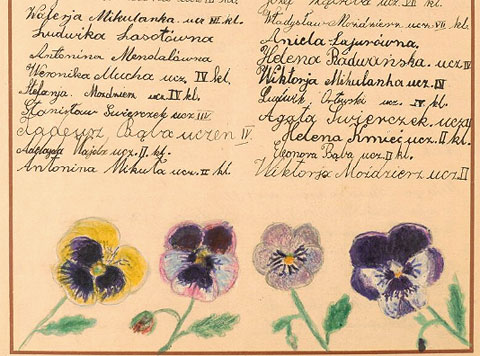 Walerja Mikulanka. ucz VII kl.
Ludwika Lasotówna
Antonina Mendalówna
Weronika Mucha ucz. IV kl.
Stefanja. Moździerz ucz. IV kl.
Stanisław Świerczek ucz III
Tadeusz Bąba uczeń IV.
ucz. II. kl.
Antonina Mikuła ucz. II kl.
Władysław Moździerz ucz. VII kl.
Aniela Lazurówna.
Helena Radwańska. ucz IV
Wiktorja Mikulanka ucz. IV
Ludwik ucz. IV kl.
Agata Świerczek. ucz
Helena Kmieć ucz. II kl.
Eleonora Bąba ucz. II kl.
Wiktorja Moździerz ucz. II